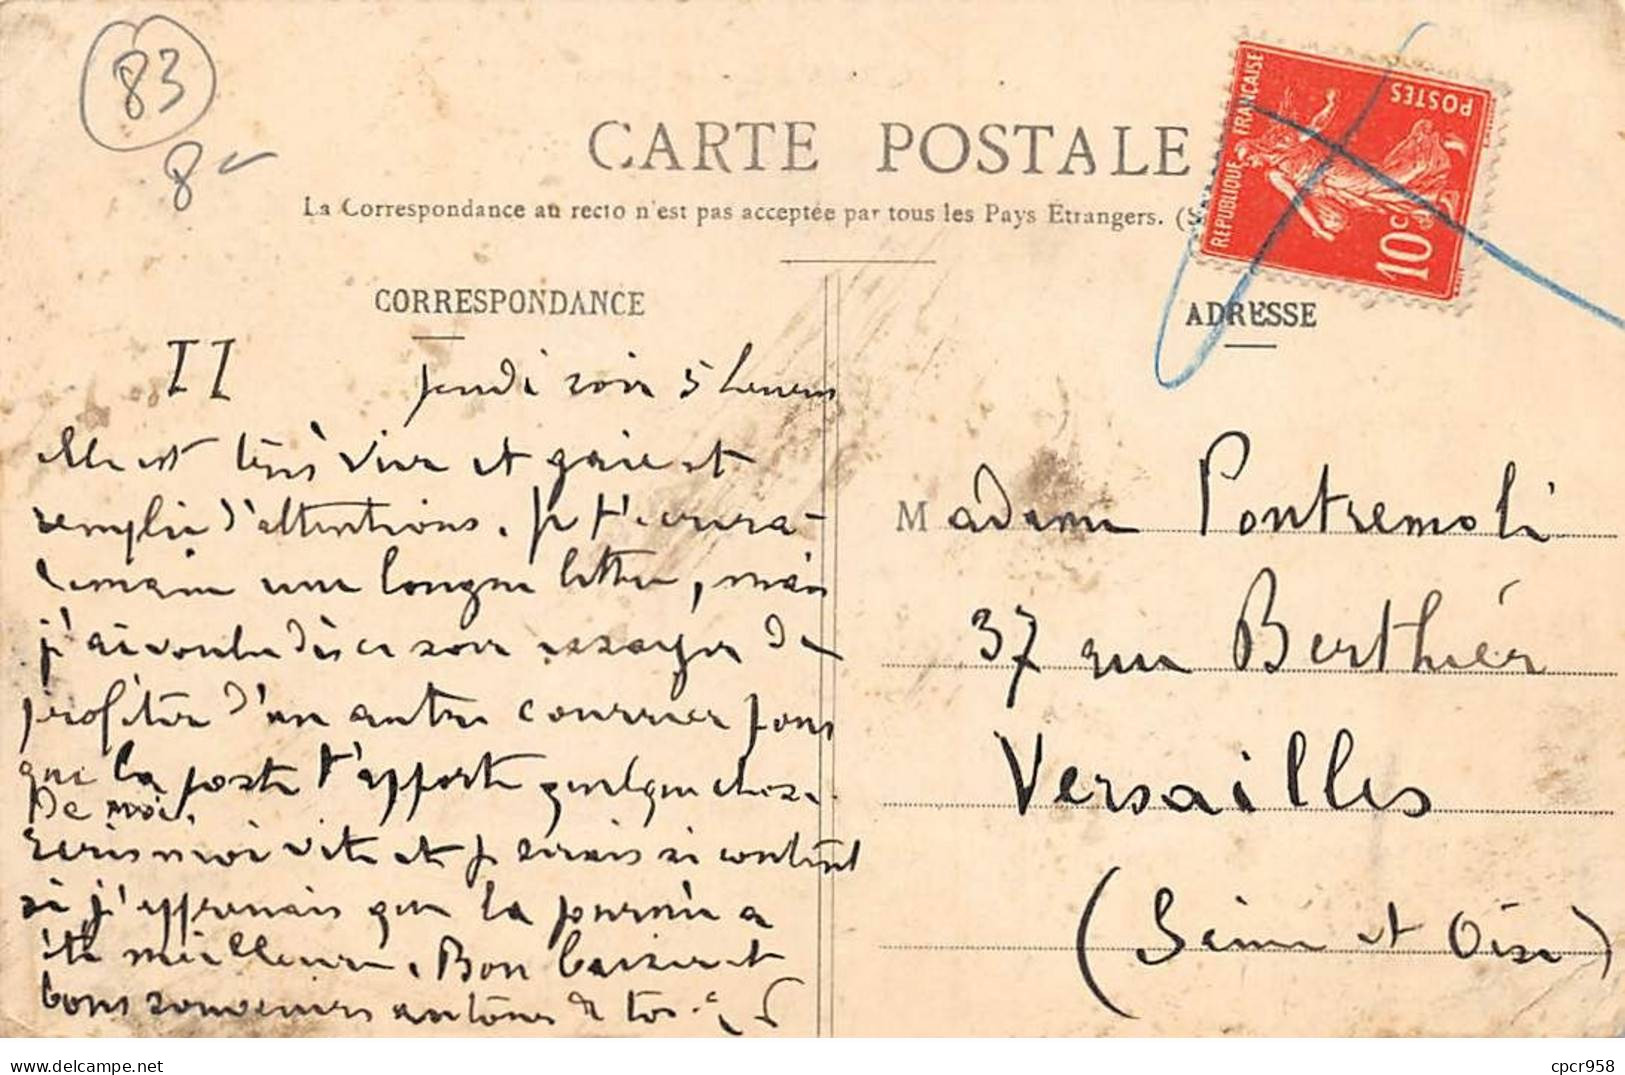 83
8
CARTE POSTALE
La Correspondance au recto n'est pas acceptée par tous les Pays Etrangers. (S
REPUBLIQUE FRANÇAISE
POSTES
10c
CORRESPONDANCE
ADRESSE
II jeudi soir 5 heures
elle est très vive et gaie et
remplie d'attentions. Je t'écrirai
demain une longue lettre, mais
j'ai voulu dès ce soir essayer de
profiter d'un autre courrier pour
que la poste t'apporte quelque chose
de moi.
Ecris moi vite et je serais si content
si j'apprenais que la journée a
été meilleure. Bon baiser et
bons souvenirs autour de toi.
Madame Pontremoli
37 rue Berthier
Versailles
(Seine et Oise)
delcampe.net
cpcr958